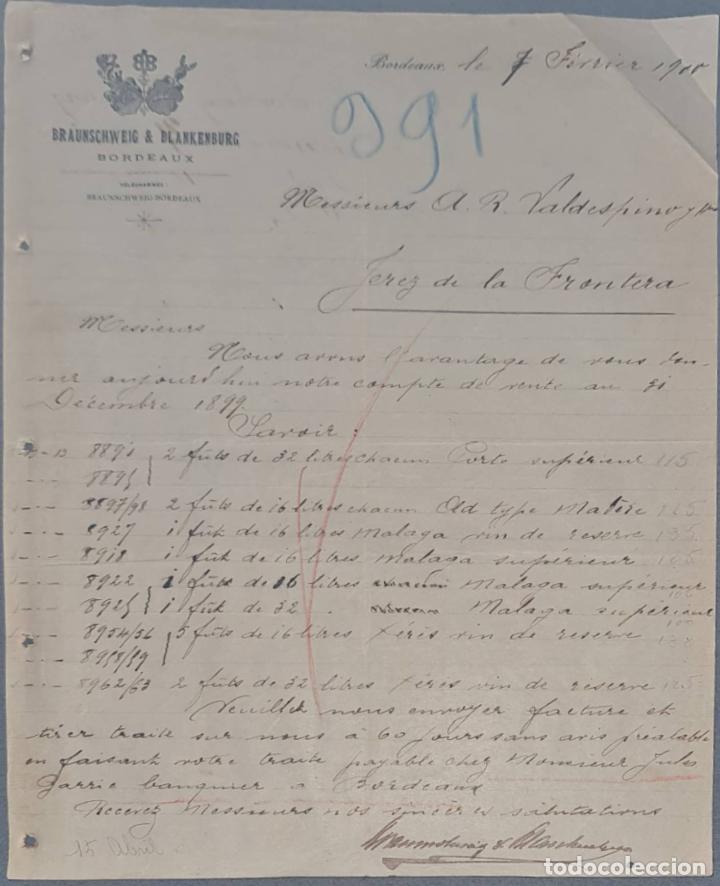 BB
BRAUNSCHWEIG & BLANKENBURG
BORDEAUX
TÉLÉGRAMMES
BRAUNSCHWEIG-BORDEAUX
Bordeaux, le 7 Février 1900
991
Messieurs A. R. Valdespino y
Jerez de la Frontera
Messieurs
Nous avons l'avantage de vous don-
ner aujourd'hui notre compte de vente au 31
Décembre 1899.
Savoir :
2 fûts de 32 litres chacun Porto supérieur 115
8895
8897/98 2 futs de 16 litres chacun Old type
8927 1 fût de 16 litres Malaga vin de reserve 135
8918 1 fût de 16 litres Malaga supérieur
8922 1 fût de 16 litres Malaga supérieur
8925 1 fût de 32 Malaga supérieur
8954/56 5 futs de 16 litres Xérès vin de reserve
8958/59
8962/63 2 futs de 32 litres Xérès vin de reserve
Veuillez nous envoyer facture et
tirer traite sur nous à 60 jours sans avis préalable
en faisant votre traite payable chez Monsieur Jules
banquier a Bordeaux
Recevez Messieurs nos sincères salutations
Braunschweig & Blankenburg
15 Abril
todocoleccion.net